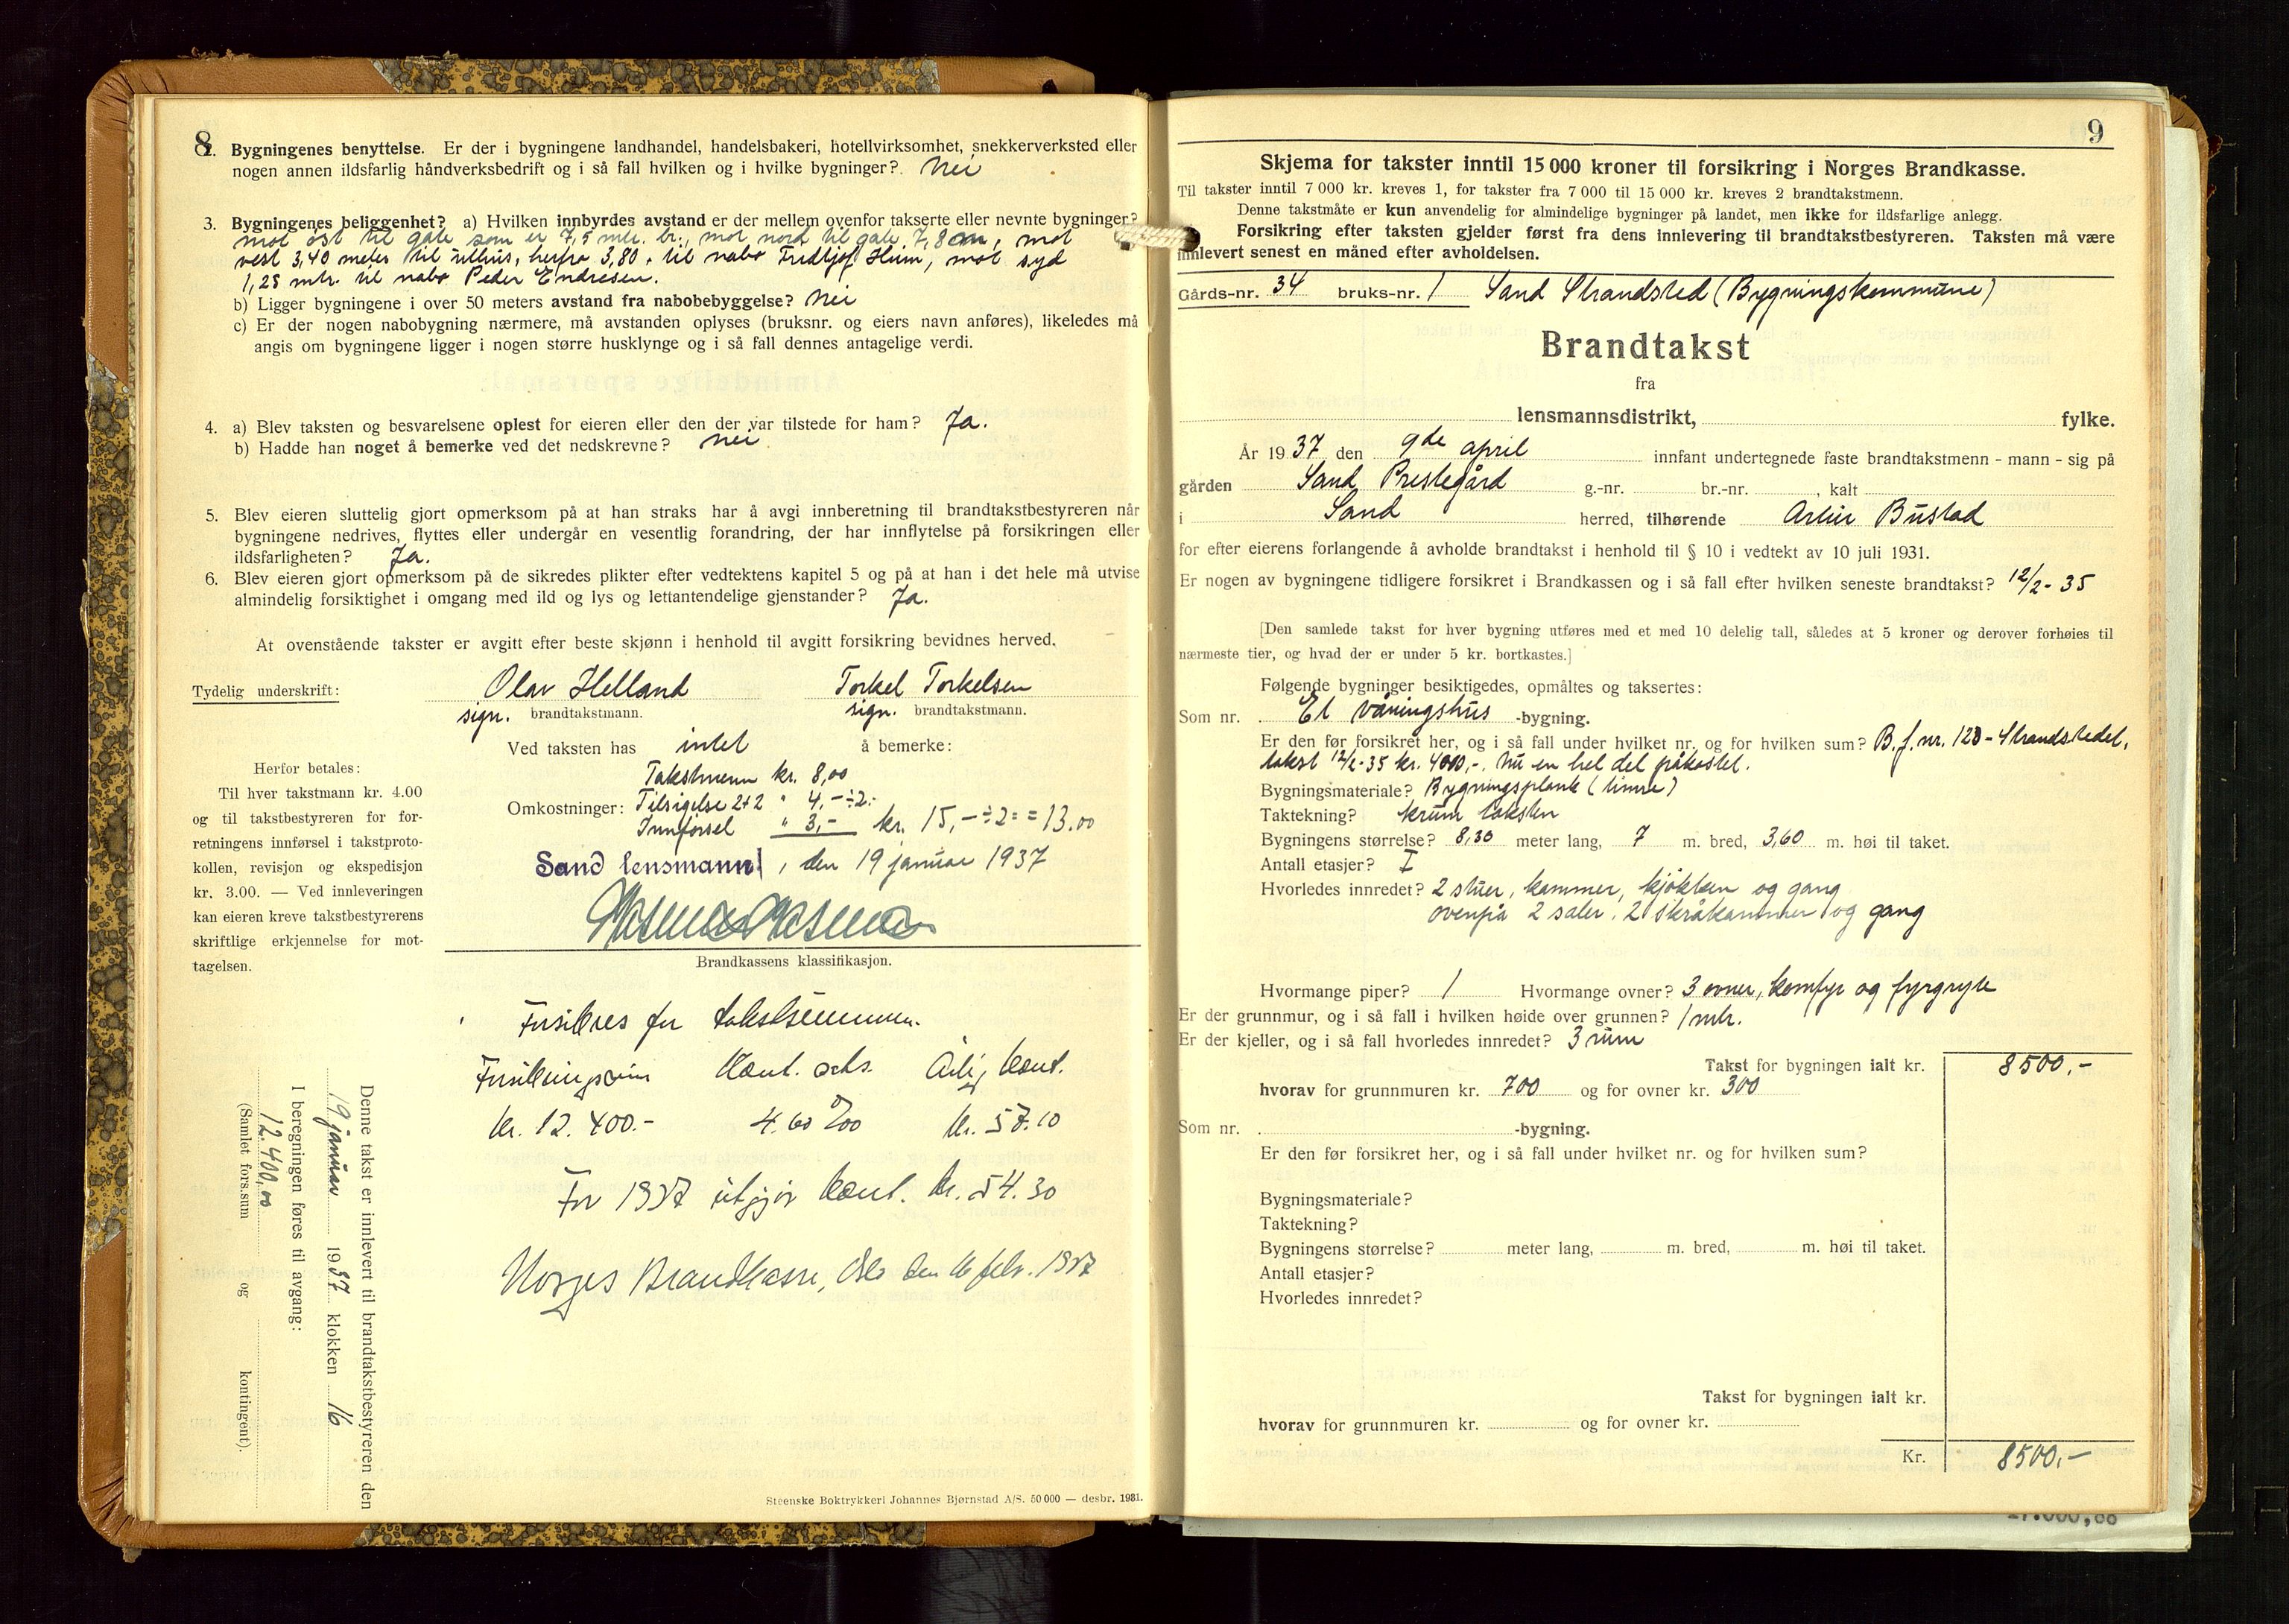 8
2. Bygningenes benyttelse. Er der i bygningene landhandel, handelsbakeri, hotellvirksomhet, snekkerverksted eller
nogen annen ildsfarlig håndverksbedrift og i så fall hvilken og i hvilke bygninger? Nei
3. Bygningenes beliggenhet? a) Hvilken innbyrdes avstand er der mellem ovenfor takserte eller nevnte bygninger?
mot øst til gate som er 7,5 mtr. br., mot nord til gate 7,8 m, mot
vest 3,40 meter til uthus, herfra 3,80 . til nabo Fridtjof Hum, mot syd
1,25 mtr. til nabo Peder Endresen.
b) Ligger bygningene i over 50 meters avstand fra nabobebyggelse? Nei
c) Er der nogen nabobygning nærmere, må avstanden oplyses (bruksnr. og eiers navn anføres), likeledes må
angis om bygningene ligger i nogen større husklynge og i så fall dennes antagelige verdi.
4. a) Blev taksten og besvarelsene oplest for eieren eller den der var tilstede for ham? Ja.
b) Hadde han noget å bemerke ved det nedskrevne? nei
5. Blev eieren sluttelig gjort opmerksom på at han straks har å avgi innberetning til brandtakstbestyreren når
bygningene nedrives, flyttes eller undergår en vesentlig forandring, der har innflytelse på forsikringen eller
ildsfarligheten? Ja.
6. Blev eieren gjort opmerksom på de sikredes plikter efter vedtektens kapitel 5 og på at han i det hele må utvise
almindelig forsiktighet i omgang med ild og lys og lettantendelige gjenstander? Ja.
At ovenstående takster er avgitt efter beste skjønn i henhold til avgitt forsikring bevidnes herved.
Tydelig underskrift: Olav Helland Torkel Torkelsen
sign. brandtakstmann. sign. brandtakstmann.
Ved taksten has intet å bemerke:
Herfor betales:
Til hver takstmann kr. 4.00
og til takstbestyreren for for-
retningens innførsel i takstproto-
kollen, revisjon og ekspedisjon
kr. 3.00. — Ved innleveringen
kan eieren kreve takstbestyrerens
skriftlige erkjennelse for mot-
tagelsen.
Takstmenn kr. 8,00
Omkostninger: Tilsigelse 2+2 " 4,- ÷2.-
Innførsel " 3,- kr. 15,- ÷2 = = 13.00
Sand lensmann, den 19 januar 1937
Brandkassens klassifikasjon.
Forsikres for takstsummen.
Forsikringssum Kont. sats. Årlig kont.
kr. 12.400.- 4.60 ‰ kr. 57.10
For 1937 utgjør kont. kr. 54.30
Norges Brandkasse, Oslo den 16 febr. 1937
Denne takst er innlevert til brandtakstbestyreren den
19 januar 1937 klokken 16
I beregningen føres til avgang:
12.400,00
(Samlet fors.sum og kontingent).
Steenske Boktrykkeri Johannes Bjørnstad A/S. 50 000 — desbr. 1931.
9
Skjema for takster inntil 15 000 kroner til forsikring i Norges Brandkasse.
Til takster inntil 7 000 kr. kreves 1, for takster fra 7 000 til 15 000 kr. kreves 2 brandtakstmenn.
Denne takstmåte er kun anvendelig for almindelige bygninger på landet, men ikke for ildsfarlige anlegg.
Forsikring efter taksten gjelder først fra dens innlevering til brandtakstbestyreren. Taksten må være
innlevert senest en måned efter avholdelsen.
Gårds-nr. 34 bruks-nr. 1 Sand Strandsted (Bygningskommune)
Brandtakst
fra
lensmannsdistrikt, fylke.
År 1937 den 9de april innfant undertegnede faste brandtakstmenn - mann - sig på
gården Sand Prestegård g.-nr. br.-nr. , kalt
i Sand herred, tilhørende Artur Bustad
for efter eierens forlangende å avholde brandtakst i henhold til § 10 i vedtekt av 10 juli 1931.
Er nogen av bygningene tidligere forsikret i Brandkassen og i så fall efter hvilken seneste brandtakst? 12/2-35
[Den samlede takst for hver bygning utføres med et med 10 delelig tall, således at 5 kroner og derover forhøies til
nærmeste tier, og hvad der er under 5 kr. bortkastes.]
Følgende bygninger besiktigedes, opmåltes og taksertes:
Som nr. Et våningshus -bygning.
Er den før forsikret her, og i så fall under hvilket nr. og for hvilken sum? B.f.nr. 120 - Strandstedet,
takst 12/2-35 kr. 4000,-. Nu en hel del påkostet.
Bygningsmateriale? Bygningsplank (tinne)
Taktekning? krum taksten
Bygningens størrelse? 8,30 meter lang, 7 m. bred, 3,60 m. høi til taket.
Antall etasjer? I
Hvorledes innredet? 2 stuer, kammer, kjøkken og gang
ovenpå 2 saler, 2 skråkammer og gang
Hvormange piper? 1 Hvormange ovner? 3 ovner, komfyr og fyrgryte
Er der grunnmur, og i så fall i hvilken høide over grunnen? 1 mtr.
Er der kjeller, og i så fall hvorledes innredet? 3 rum
Takst for bygningen ialt kr. 8500,-
hvorav for grunnmuren kr. 700 og for ovner kr. 300
Som nr. -bygning.
Er den før forsikret her, og i så fall under hvilket nr. og for hvilken sum?
Bygningsmateriale?
Taktekning?
Bygningens størrelse? meter lang, m. bred, m. høi til taket.
Antall etasjer?
Hvorledes innredet?
Takst for bygningen ialt kr.
hvorav for grunnmuren kr. og for ovner kr.
Kr. 8500,-